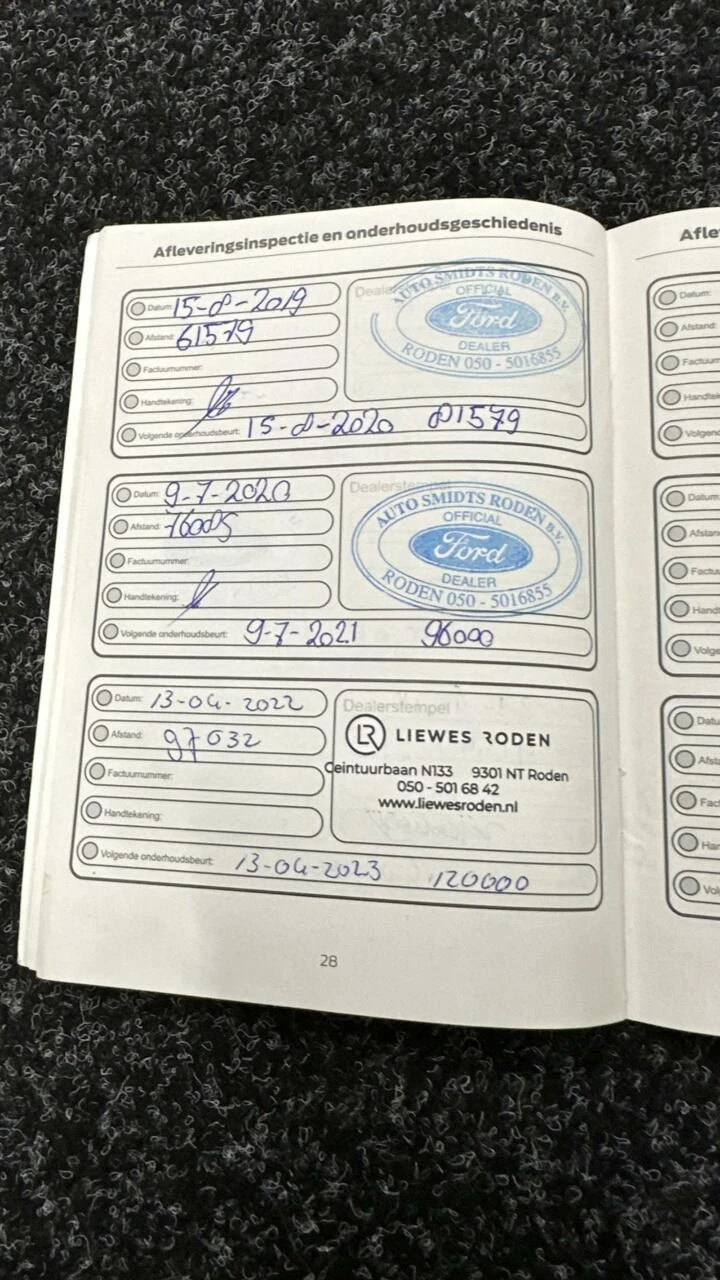 Afleveringsinspectie en onderhoudsgeschiedenis
Datum: 15-8-2019
Afstand: 61579
Factuurnummer:
Handtekening:
Volgende onderhoudsbeurt: 15-8-2020 81579
AUTO SMIDTS RODEN B.V.
OFFICIAL
Ford
DEALER
RODEN 050 - 5016855
Datum: 9-7-2020
Afstand:
Factuurnummer:
Handtekening:
Volgende onderhoudsbeurt: 9-7-2021 96000
Dealerstempel
AUTO SMIDTS RODEN B.V.
OFFICIAL
Ford
DEALER
RODEN 050 - 5016855
Datum: 13-04-2022
Afstand: 97032
Factuurnummer:
Handtekening:
Volgende onderhoudsbeurt: 13-04-2023 120000
Dealerstempel
LR LIEWES RODEN
Ceintuurbaan N133 9301 NT Roden
050 - 501 68 42
www.liewesroden.nl
28
Afle
Datum:
Afstand:
Factuur
Handtek
Volgend
Datum
Afstan
Factu
Hand
Volge
Datu
Afst
Fac
Har
Vol